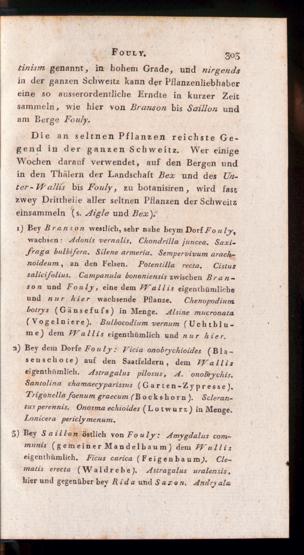 FOULY. 305
tinism genannt, in hohem Grade, und nirgends
in der ganzen Schweitz kann der Pflanzenliebhaber
eine so ausserordentliche Erndte in kurzer Zeit
sammeln, wie hier von Branson bis Saillon und
am Berge Fouly.
Die an seltnen Pflanzen reichste Ge-
gend in der ganzen Schweitz. Wer einige
Wochen darauf verwendet, auf den Bergen und
in den Thälern der Landschaft Bex und des Un-
ter-Wallis bis Fouly, zu botanisiren, wird fast
zwey Drittheile aller seltnen Pflanzen der Schweitz
einsammeln (s. Aigle und Bex).
1) Bey Branson westlich, sehr nahe beym Dorf Fouly,
wachsen: Adonis vernalis. Chondrilla juncea. Saxi-
fraga bulbifera. Silene armeria. Sempervivum arach-
noideum, an den Felsen. Potentilla recta. Cistus
salicifolius. Campanula bononiensis zwischen Bran-
son und Fouly, eine dem Wallis eigenthümliche
und nur hier wachsende Pflanze. Chenopodium
botrys (Gänsefuſs) in Menge. Alsine mucronata
(Vogelniere). Bulbocodium vernum (Uchtblu-
me) dem Wallis eigenthümlich und nur hier.
2) Bey dem Dorfe Fouly: Vicia onobrychioides (Bla-
senschote) auf den Saatfeldern, dem Wallis
eigenthümlich. Astragalus pilosus, A. onobrychis.
Santolina chamaecyparissus (Garten-Zypresse).
Trigonella foenum graecum (Bockshorn). Scleran-
tus perennis. Onosma echioides (Lotwurz) in Menge.
Lonicera periclymenum.
3) Bey Saillon östlich von Fouly: Amygdalus com-
munis (gemeiner Mandelbaum) dem Wallis
eigenthümlich. Ficus carica (Feigenbaum). Cle-
matis erecta (Waldrebe). Astragalus uralensis,
hier und gegenüber bey Rida und Saxon. Andryala